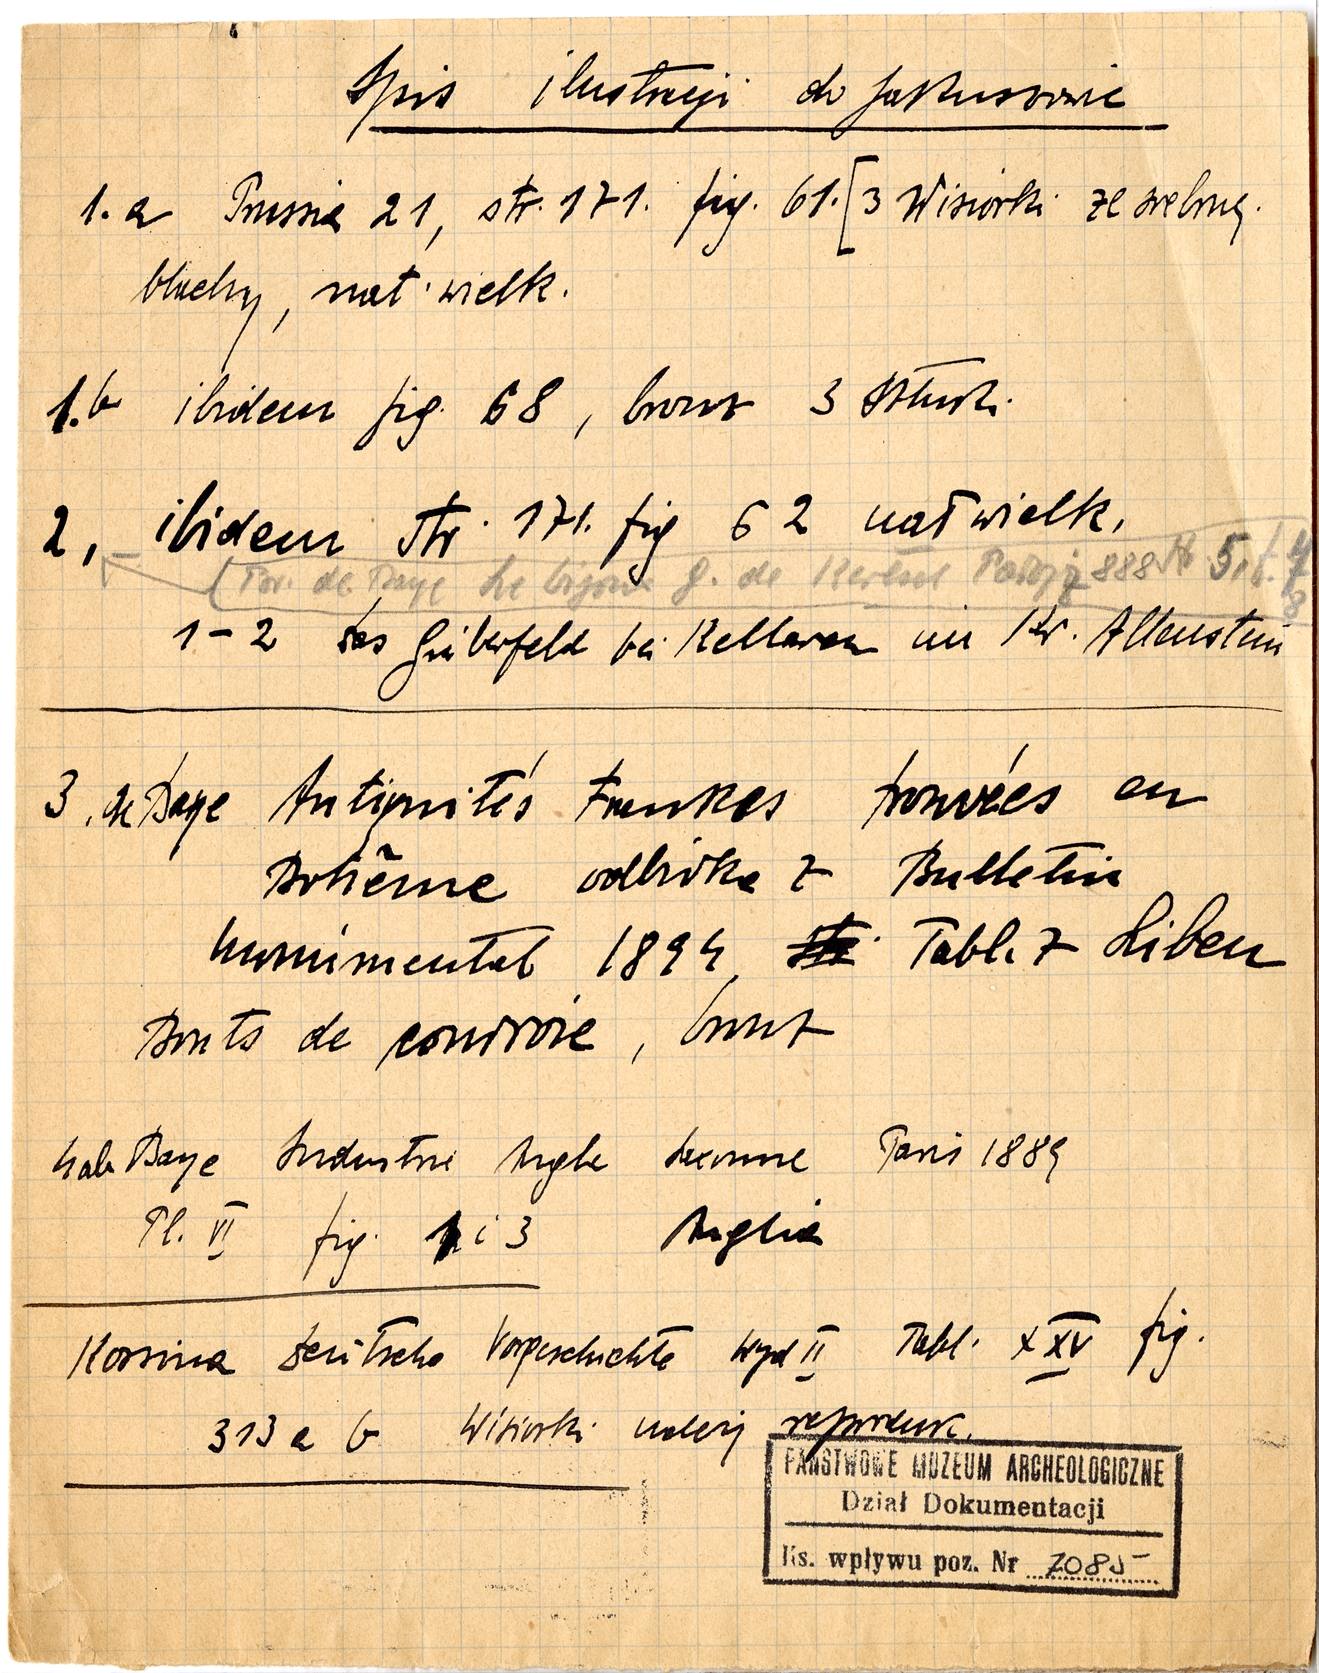 Spis ilustracji do Jakuszowic
1.a Prussia 21, str. 171. fig. 61. [3 Wisiorki ze srebrnej.
blachy, nat. wielk.
1.b ibidem fig. 68, bronz 3 sztuki.
2, ibidem str. 171. fig 62 nat wielk.
(Por. de Baye Les bijoux g. de Kertsch Paryż 888 5, f.
1-2 das Gräberfeld bei Kellaren im Kr. Allenstein
3. de Baye Antiquités Frankes trouvées en
Bohême odbitka z Bulletin
Monumental 1894, Tabl. 7 Liben
Bouts de courroie, bronz
4 de Baye Industrie Anglo Saxonne Paris 1889
Pl. VI fig. 1 i 3 Anglia
Kossina Deutsche Vorgeschichte wyd II Tabl. XXV fig.
313 a b Wisiorki należy reproduk.
PAŃSTWOWE MUZEUM ARCHEOLOGICZNE
Dział Dokumentacji
Ks. wpływu poz. Nr 7085